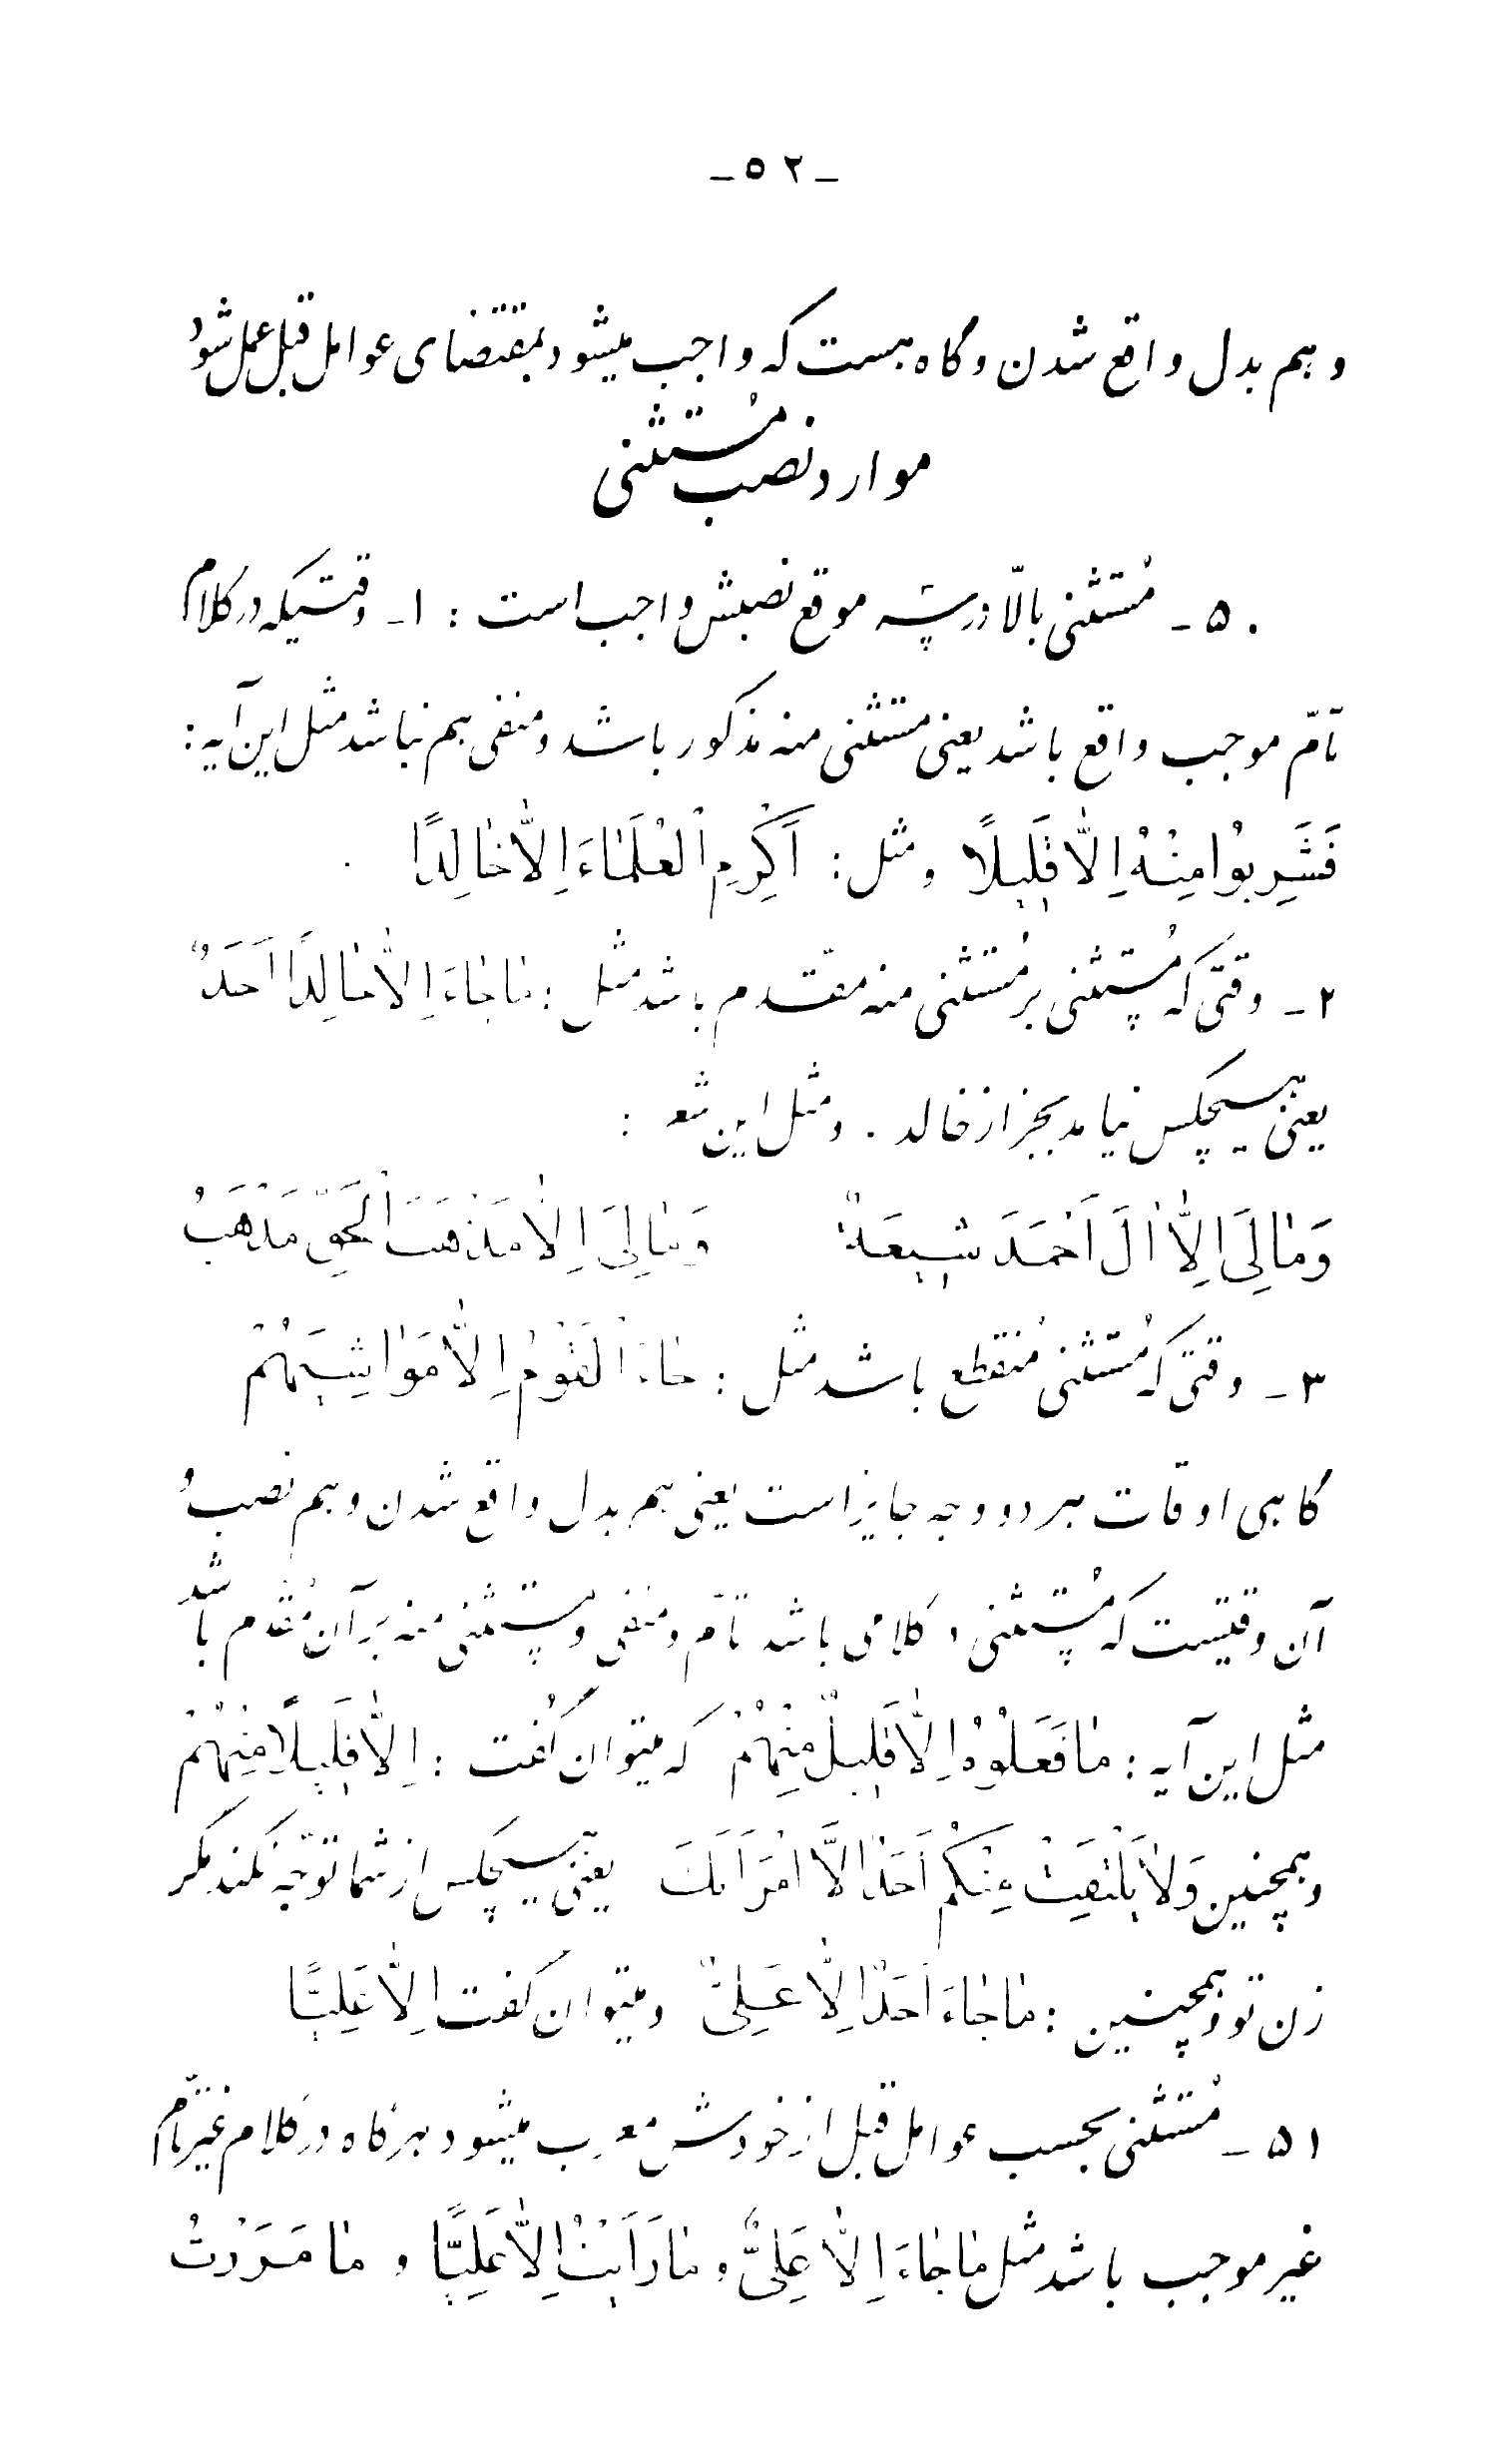 -۵۲-
و هم بدل واقع شدن و گاه هست که واجب میشود بمقتضای عوامل قبل عمل شود
موارد نصب مُستثنی
۵۰- مُستثنی بالّا در سه موقع نصبش واجب است : ۱- وقتیکه در کلام
تامّ موجب واقع باشد یعنی مستثنی منه مذکور باشد و منفی هم نباشد مثل این آیه :
فَشَرِبُوا مِنْهُ اِلاّٰ قَلِيلًا و مثل : اَكْرِمِ الْعُلَمٰاءَ اِلاّٰ خٰالِدًا .
۲- وقتی که مُستثنی بر مُستثنی منه مقدم باشد مثل : مٰا جٰاءَ اِلاّٰ خٰالِدًا اَحَدٌ
یعنی هیچکس نیامد بجز از خالد . و مثل این شعر :
وَمٰا لِىَ اِلاّٰ اٰلَ اَحْمَدَ شِيعَةٌ وَمٰا لِىَ اِلاّٰ مَذْهَبَ الْحَقِّ مَذْهَبُ
۳- وقتی که مُستثنی مُنقطع باشد مثل : جٰاءَ الْقَوْمُ اِلاّٰ مَوٰاشِيَهُمْ
گاهی اوقات هر دو وجه جایز است یعنی هم بدل واقع شدن و هم نصب و
آن وقتیست که مُستثنی در کلامی باشد تامّ و منفی و مستثنی منه بر آن مُقدم باشد
مثل این آیه : مٰا فَعَلُوهُ اِلاّٰ قَلِيلٌ مِنْهُمْ که میتوان گفت : اِلاّٰ قَلِيلًا مِنْهُمْ
و همچنین وَلاٰ يَلْتَفِتْ مِنْكُمْ اَحَدٌ اِلاَّ امْرَاَتَكَ یعنی هیچکس از شما توجّه نکند مگر
زن تو و همچنین : مٰا جٰاءَ اَحَدٌ اِلاّٰ عَلِىٌّ و میتوان گفت اِلاّٰ عَلِيًّا
۵۱- مُستثنی بحسب عوامل قبل از خودش معرب میشود هرگاه در کلام غیر تامّ
غیر موجب باشد مثل مٰا جٰاءَ اِلاّٰ عَلِىٌّ و مٰا رَاَيْتُ اِلاّٰ عَلِيًّا و مٰا مَرَرْتُ